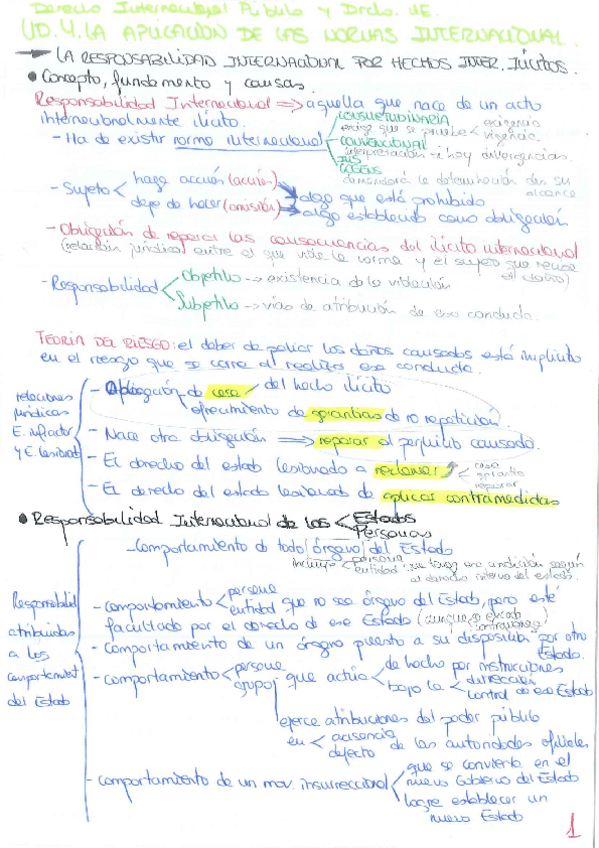 Derecho Internacional Público y Drcho. UE.
UD.4. LA APLICACIÓN DE LAS NORMAS INTERNACIONAL.
→ LA RESPONSABILIDAD INTERNACIONAL POR HECHOS INTER. ILÍCITOS.
• Concepto, fundamento y causas.
Responsabilidad Internacional ⇒ aquella que nace de un acto
internacionalmente ilícito.
CONSUETUDINARIA
exige que se pruebe < existencia vigencia.
- Ha de existir norma internacional
CONVENCIONAL
interpretación si hay divergencias.
IUS
COGENS
demandará la determinación de su
alcance
- Sujeto < haga acción (acción) → algo que está prohibido
deje de hacer (omisión) → algo establecido como obligación
- Obligación de reparar las consecuencias del ilícito internacional
(relación jurídica entre el que viola la norma y el sujeto que recibe
el daño)
- Responsabilidad < Objetivo → existencia de la violación
Subjetivo → vías de atribución de esa conducta.
TEORÍA DEL RIESGO: el deber de paliar los daños causados está implícito
en el riesgo que se corre al realizar esa conducta.
relaciones
jurídicas
E. infractor
y E. lesionado
- Obligación de cese del hecho ilícito
ofrecimiento de garantías de no repetición.
- Nace otra obligación ⇒ reparar el perjuicio causado.
- El derecho del estado lesionado a reclamar
cese
garantía
reparar
- El derecho del estado lesionado de aplicar contramedidas
• Responsabilidad Internacional de los < Estados
Personas
Responsabilid
atribuidas
a los
comportament
del Estado
- Comportamiento de todo órgano del Estado
incluye < persona entidad que tenga esa condición según
al derecho interno del estado.
- comportamiento < persona entidad que no sea órgano del Estado, pero esté
facultado por el derecho de ese Estado (aunque se exceda
- Comportamiento de un órgano puesto a su disposición por otro
Estado.
- comportamiento < persona grupo que actúa < de hecho por instrucciones
bajo la < dirección control de ese Estado
ejerce atribuciones del poder público
en < ausencia defecto de las autoridades oficiales
- comportamiento de un mov. insurreccional < que se convierta en el
nuevo Gobierno del Estado
logre establecer un
nuevo Estado
1